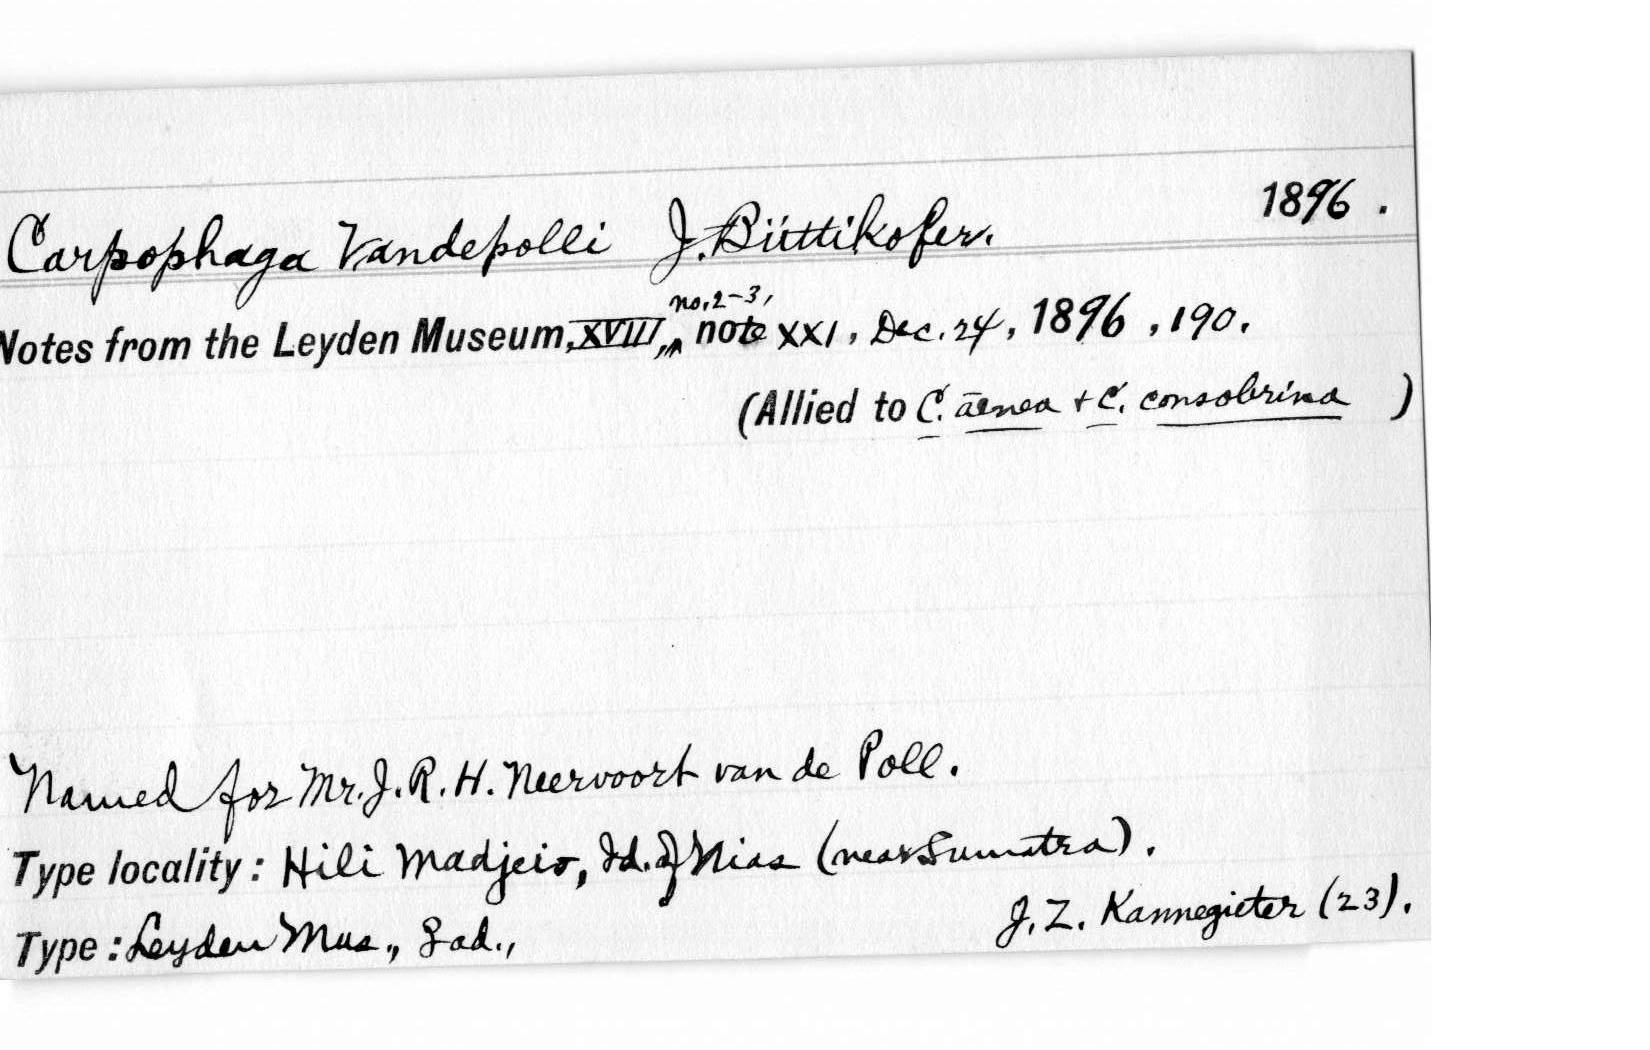 1896 .
Carpophaga Vandepolli J. Büttikofer.
no. 2-3,
Notes from the Leyden Museum, XVIII, note XXI, Dec. 24, 1896 , 190.
(Allied to C. aenea + C. consobrina )
Named for Mr. J. R. H. Neervoort van de Poll.
Type locality : Hili Madjeio, Id. of Nias (near Sumatra).
J. Z. Kannegieter (23).
Type : Leyden Mus., ad.,